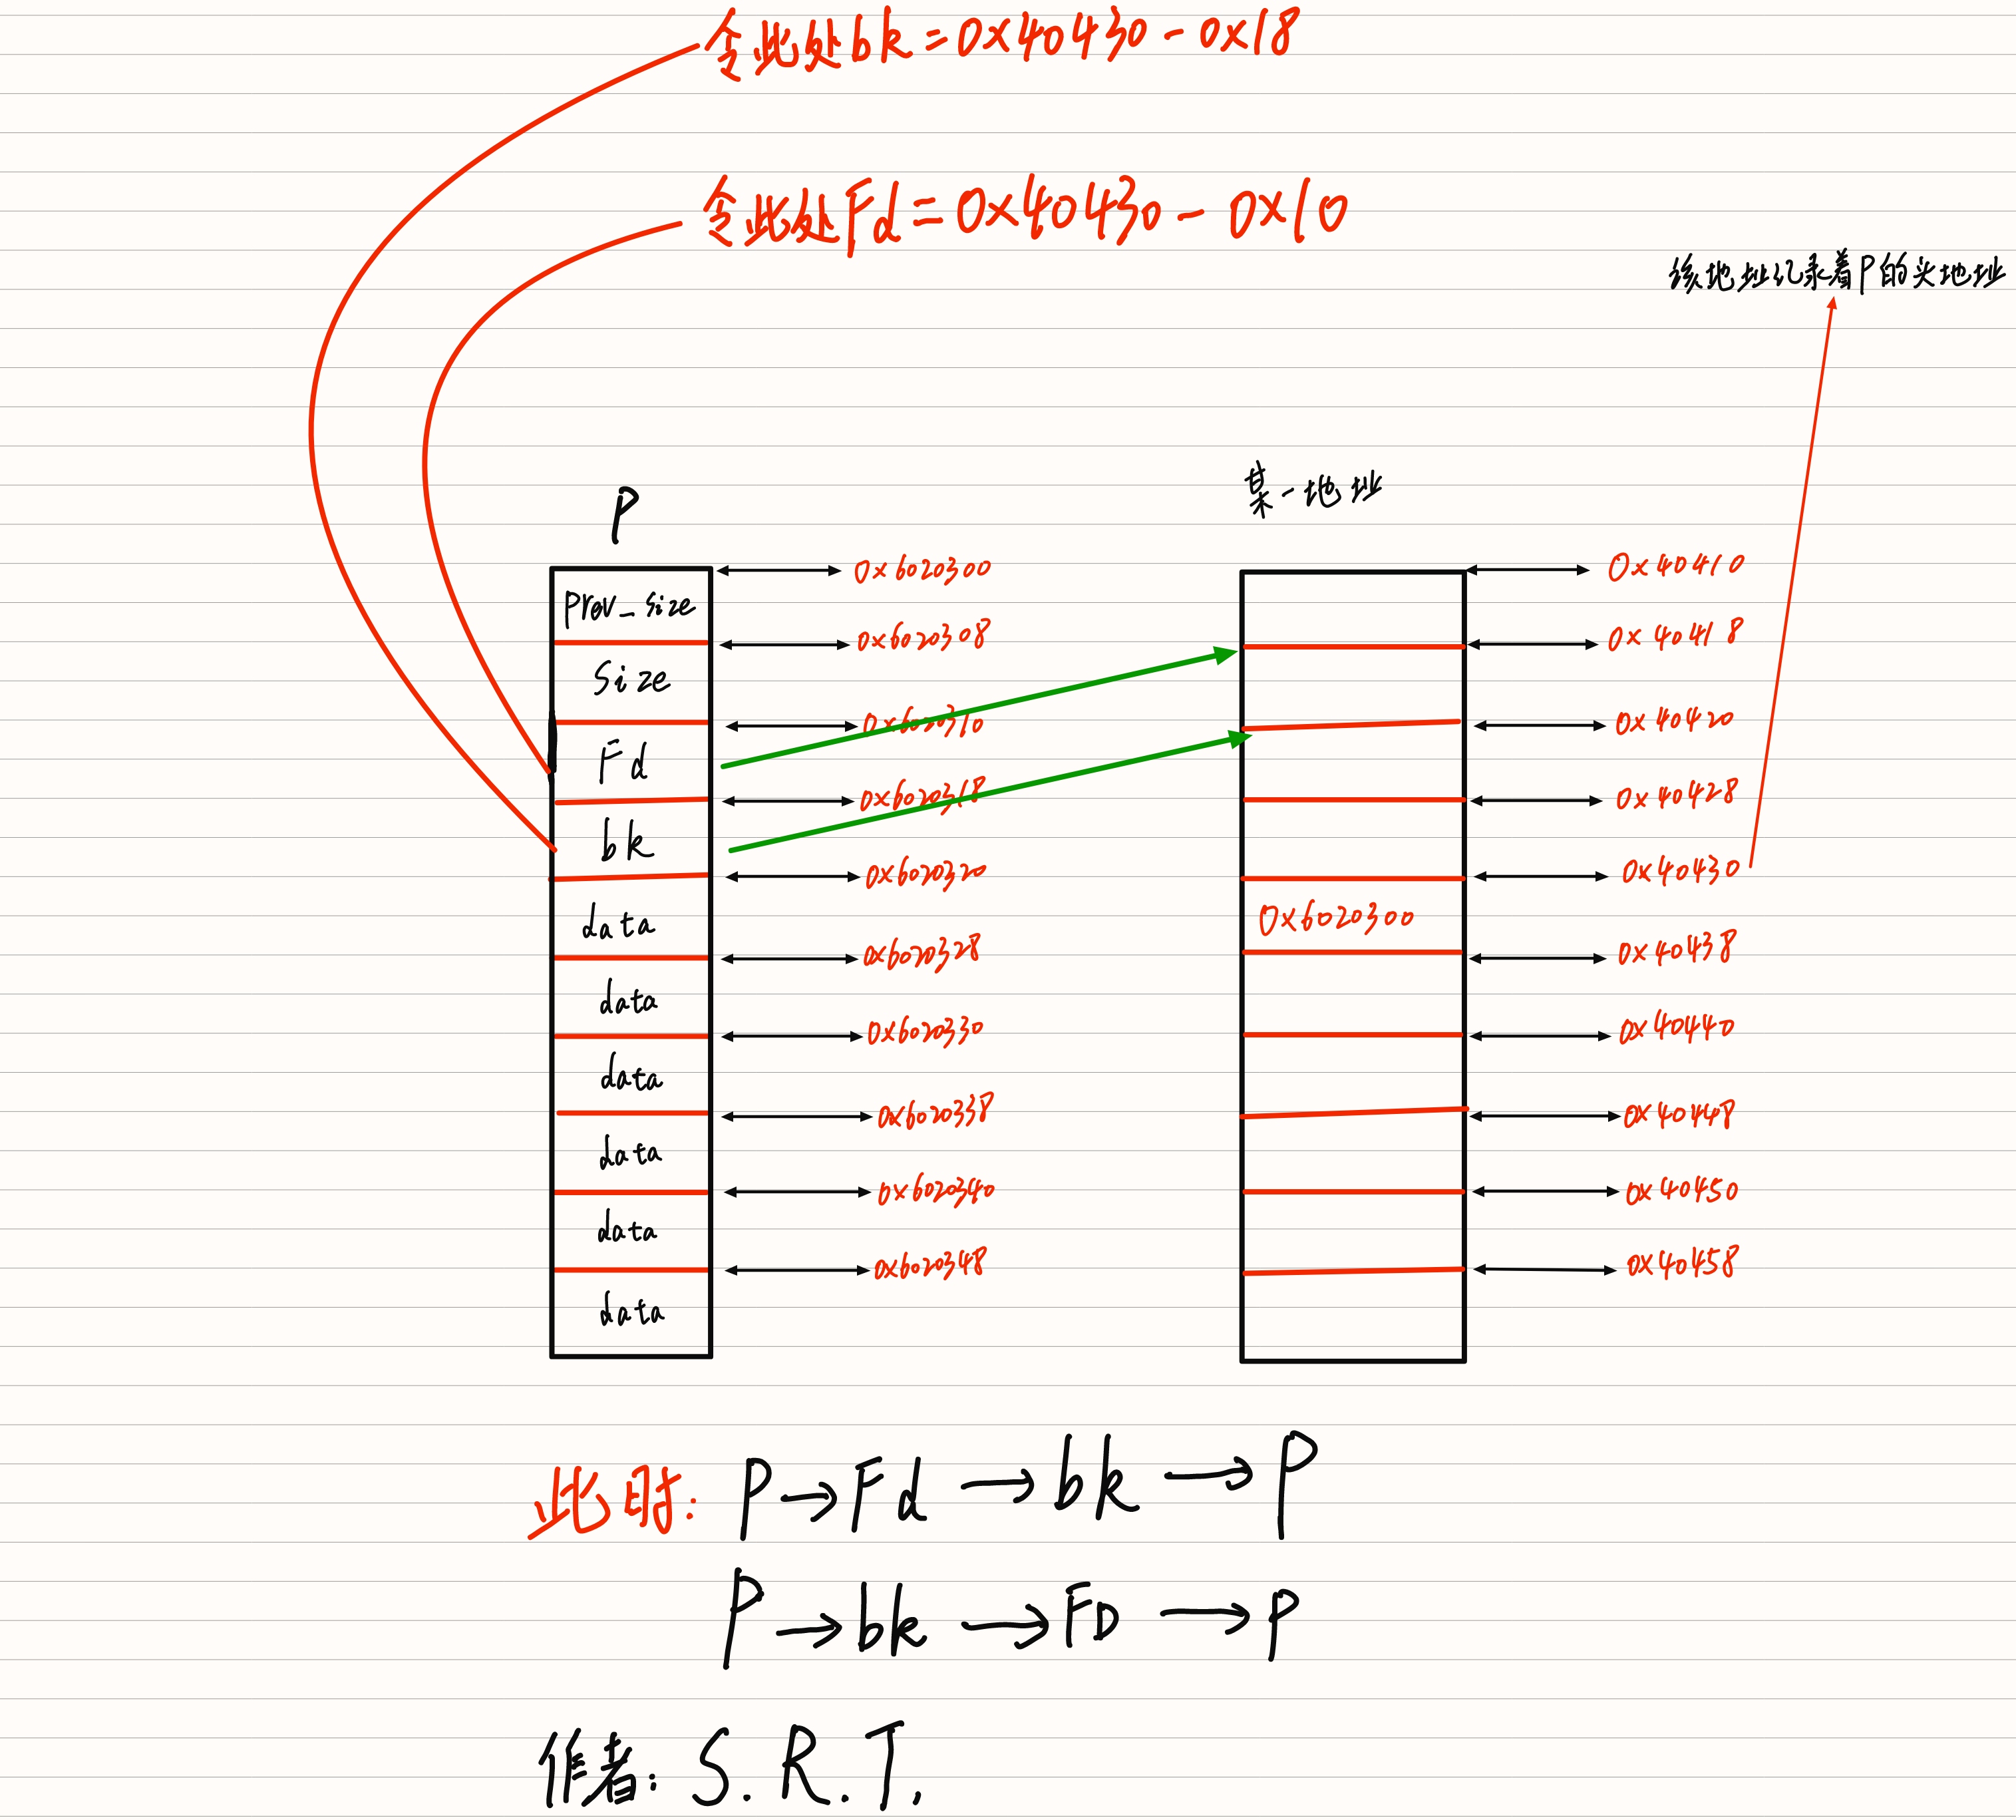 令此处bk=0x40430-0x18
令此处Fd=0x40430-0x10
该地址记录着P的头地址
某一地址
P
0x6020300
0x40410
Prev_size
0x6020308
0x40418
Size
0x6020310
0x40420
Fd
0x6020318
0x40428
bk
0x6020320
0x40430
data
0x6020300
0x6020328
0x40438
data
0x6020330
0x40440
data
0x6020338
0x40448
data
0x6020340
0x40450
data
0x6020348
0x40458
data
此时: P→Fd→bk→P
P→bk→FD→P
作者: S.R.T.